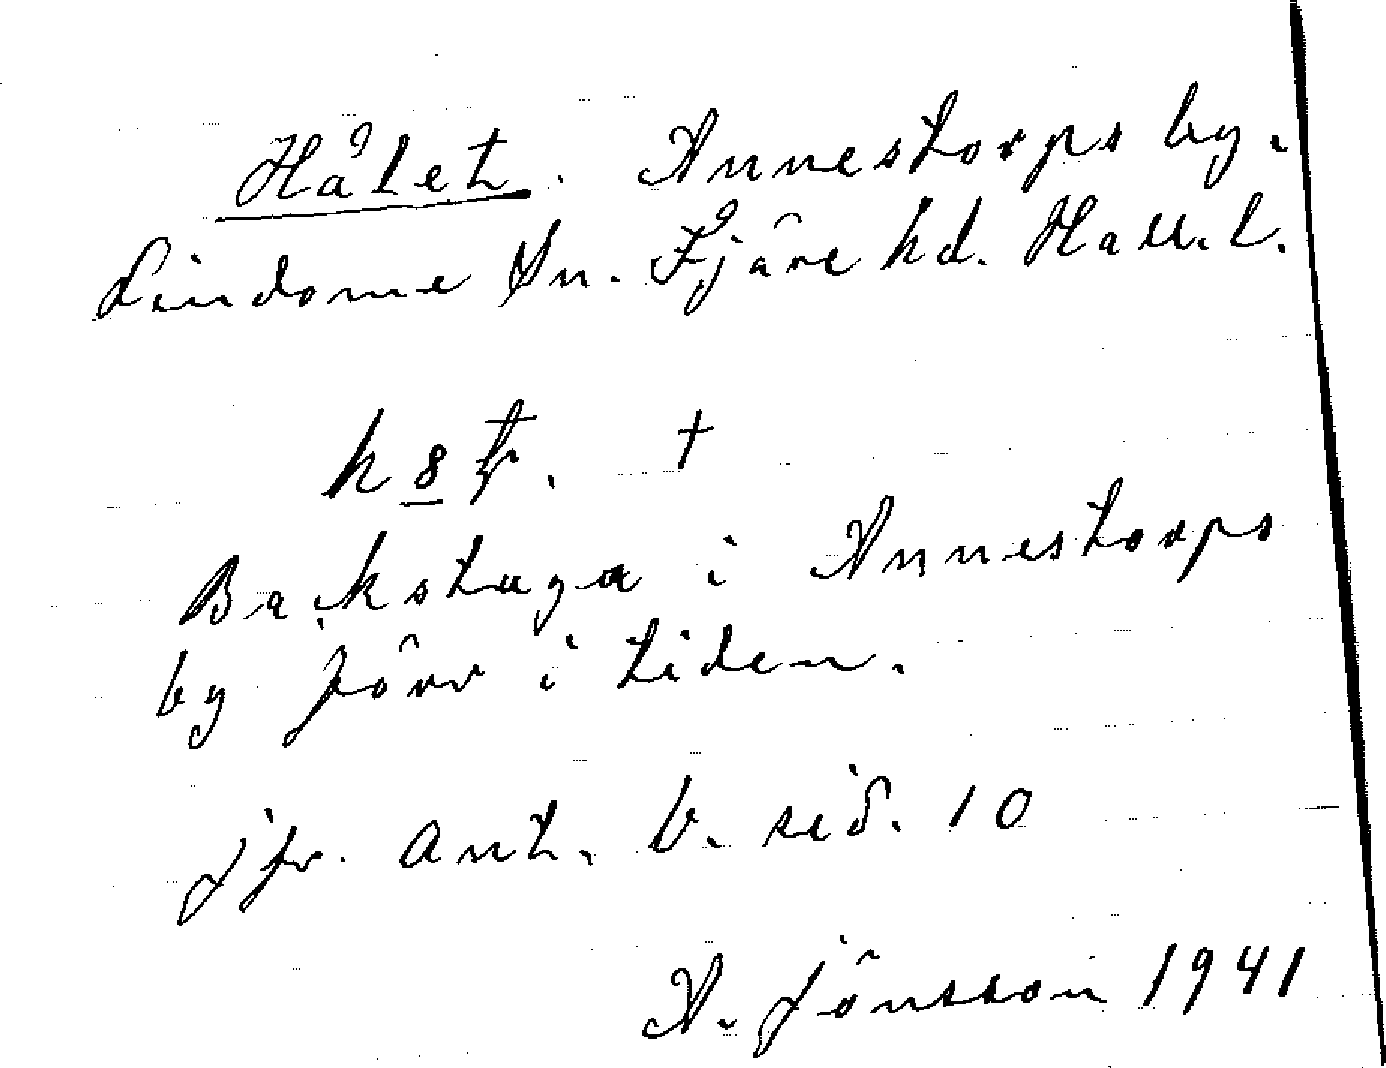 Hålet. Annestorps by.
Lindome Sn. Fjäre hd. Hall. l.
†
Backstuga i Annestorps
by förr i tiden.
jfr. Ant. b. sid. 10
A. Jönsson 1941